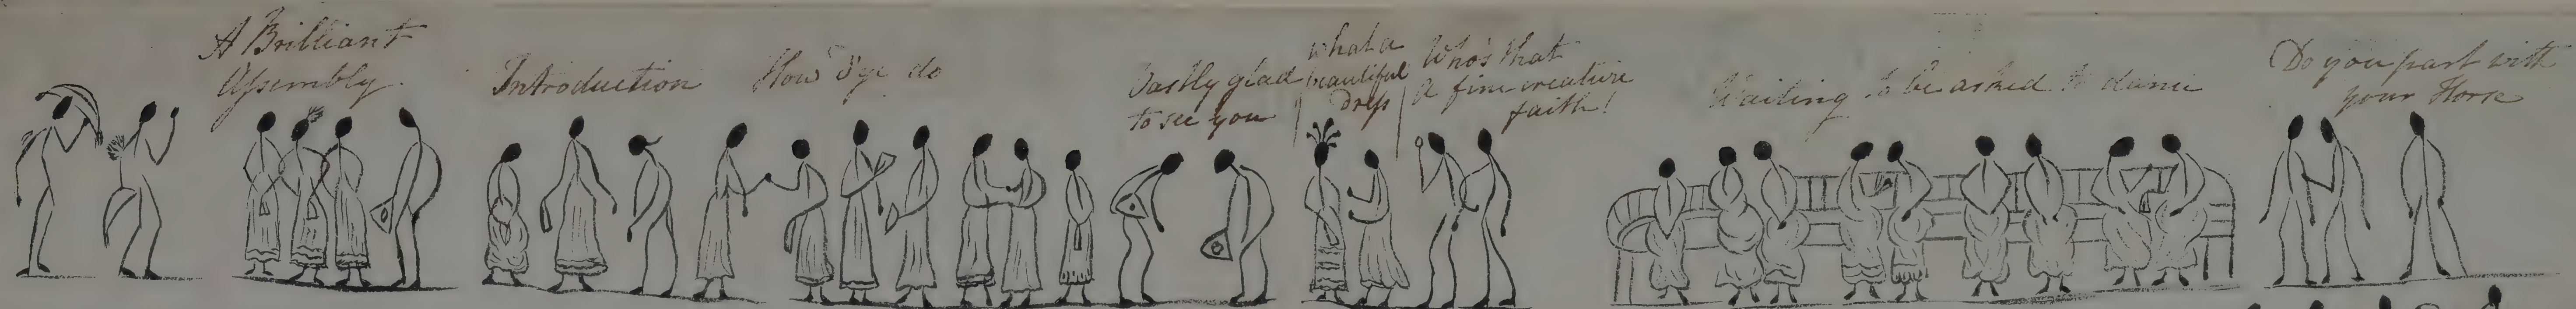 A Brilliant
Assembly.
Introduction
How d'ye do
Vastly glad
to see you
what a
beautiful
Dress
Who's that
a fine creature
faith!
Waiting to be asked to dance
Do you part with
your Horse